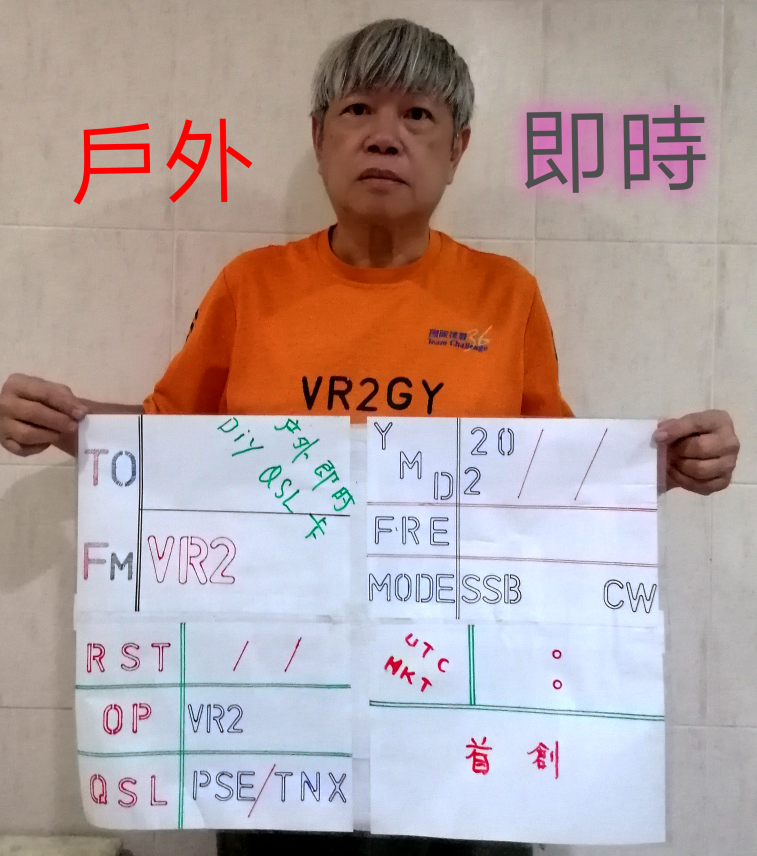 戶外
即時
國際挑戰 36
Team Challenge
VR2GY
TO
戶外 即時
DiY QSL 卡
FM VR2
Y M D 20 2 / /
FRE
MODE SSB CW
RST / /
OP VR2
QSL PSE/TNX
UTC :
HKT
首創